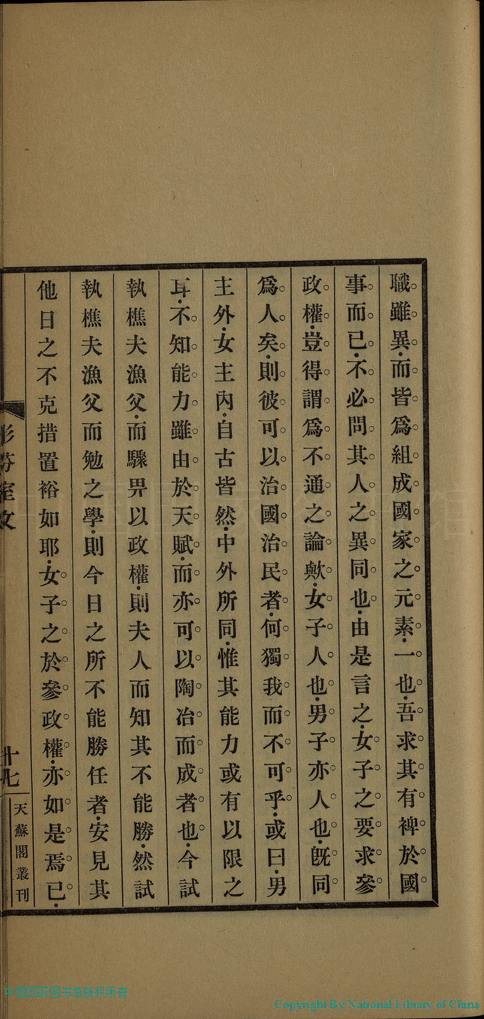 職雖異而皆爲組成國家之元素一也吾求其有裨於國
事而已不必問其人之異同也由是言之女子之要求參
政權豈得謂爲不通之論歟女子人也男子亦人也旣同
爲人矣則彼可以治國治民者何獨我而不可乎或曰男
主外女主內自古皆然中外所同惟其能力或有以限之
耳不知能力雖由於天賦而亦可以陶冶而成者也今試
執樵夫漁父而驟畀以政權則夫人而知其不能勝然試
執樵夫漁父而勉之學則今日之所不能勝任者安見其
他日之不克措置裕如耶女子之於參政權亦如是焉已
彤芬室文
十七
天蘇閣叢刊
Copyright By National Library of China